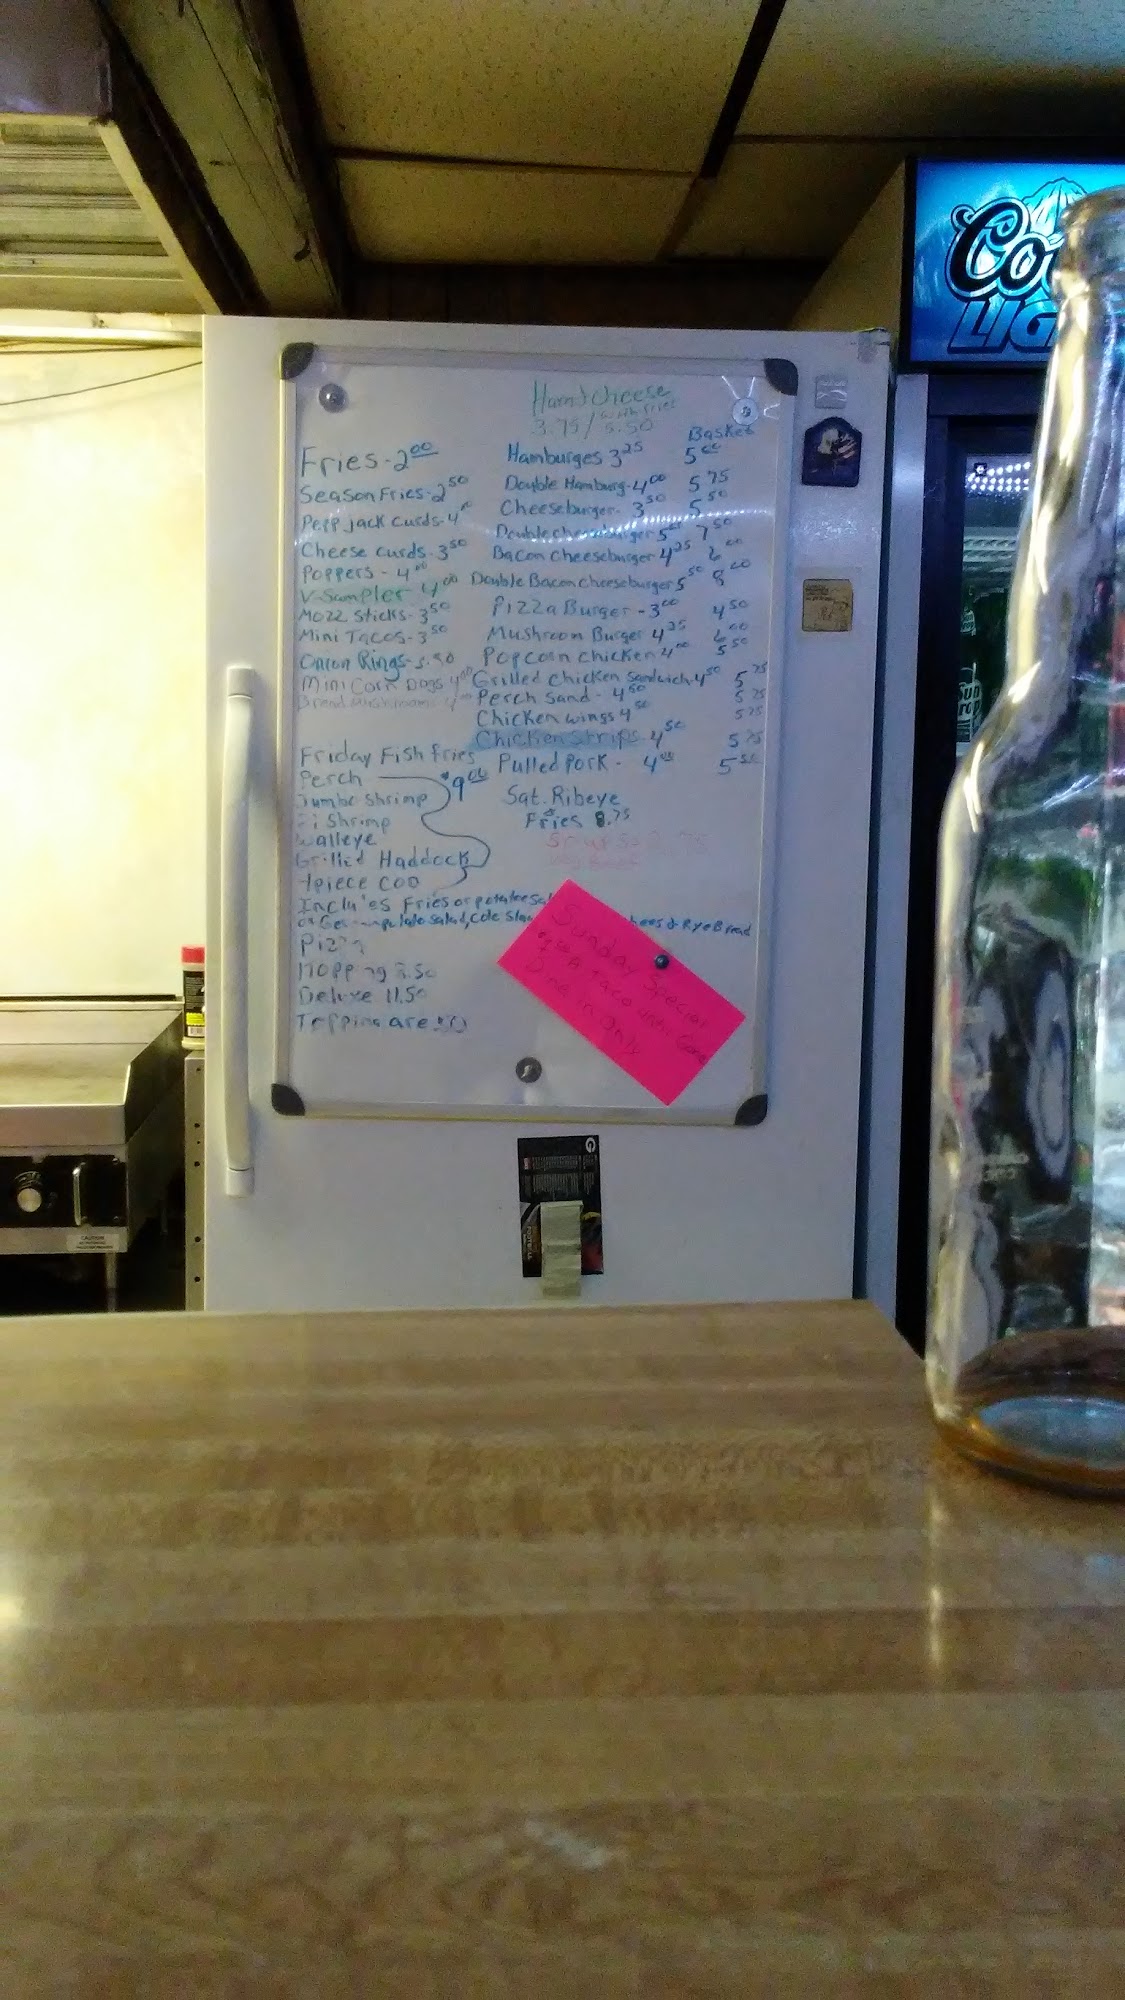 Ham & Cheese
3.75 / with fries 5.50
Basket
Fries - 2.00
Season Fries - 2.50
Pepp jack curds - 4.00
Cheese curds - 3.50
Poppers - 4.00
V-Sampler 4.00
Mozz Sticks - 3.50
Mini Tacos - 3.50
Onion Rings -
Mini Corn Dogs 4.00
Bread Mushrooms 4.00
Hamburges 3.25 5.00
Double Hamburg - 4.00 5.75
Cheeseburger - 3.50 5.50
Double cheeseburger 7.50
Bacon Cheeseburger 4.25 6.00
Double Bacon cheeseburger 5.50
Pizza Burger - 3.00 4.50
Mushroom Burger 4.25 6.00
Popcorn chicken 4.00 5.50
Grilled Chicken Sandwich - 4.50 5.75
Perch Sand - 4.50 5.75
Chicken wings 4.50 5.75
Chicken Strips - 4.50 5.75
Pulled Pork - 4.00 5.50
Sat. Ribeye
& Fries 8.75
Friday Fish fries
Perch $9.00
Jumbo Shrimp
Shrimp
Walleye
Grilled Haddock
piece COD
Fries or potatoe
potato salad, Cole Slaw & Rye Bread
Pizza
Deluxe 11.50
Topping are
Sunday Special
A Taco until Gone
Dine in Only
Coo
LIG
CAUTION